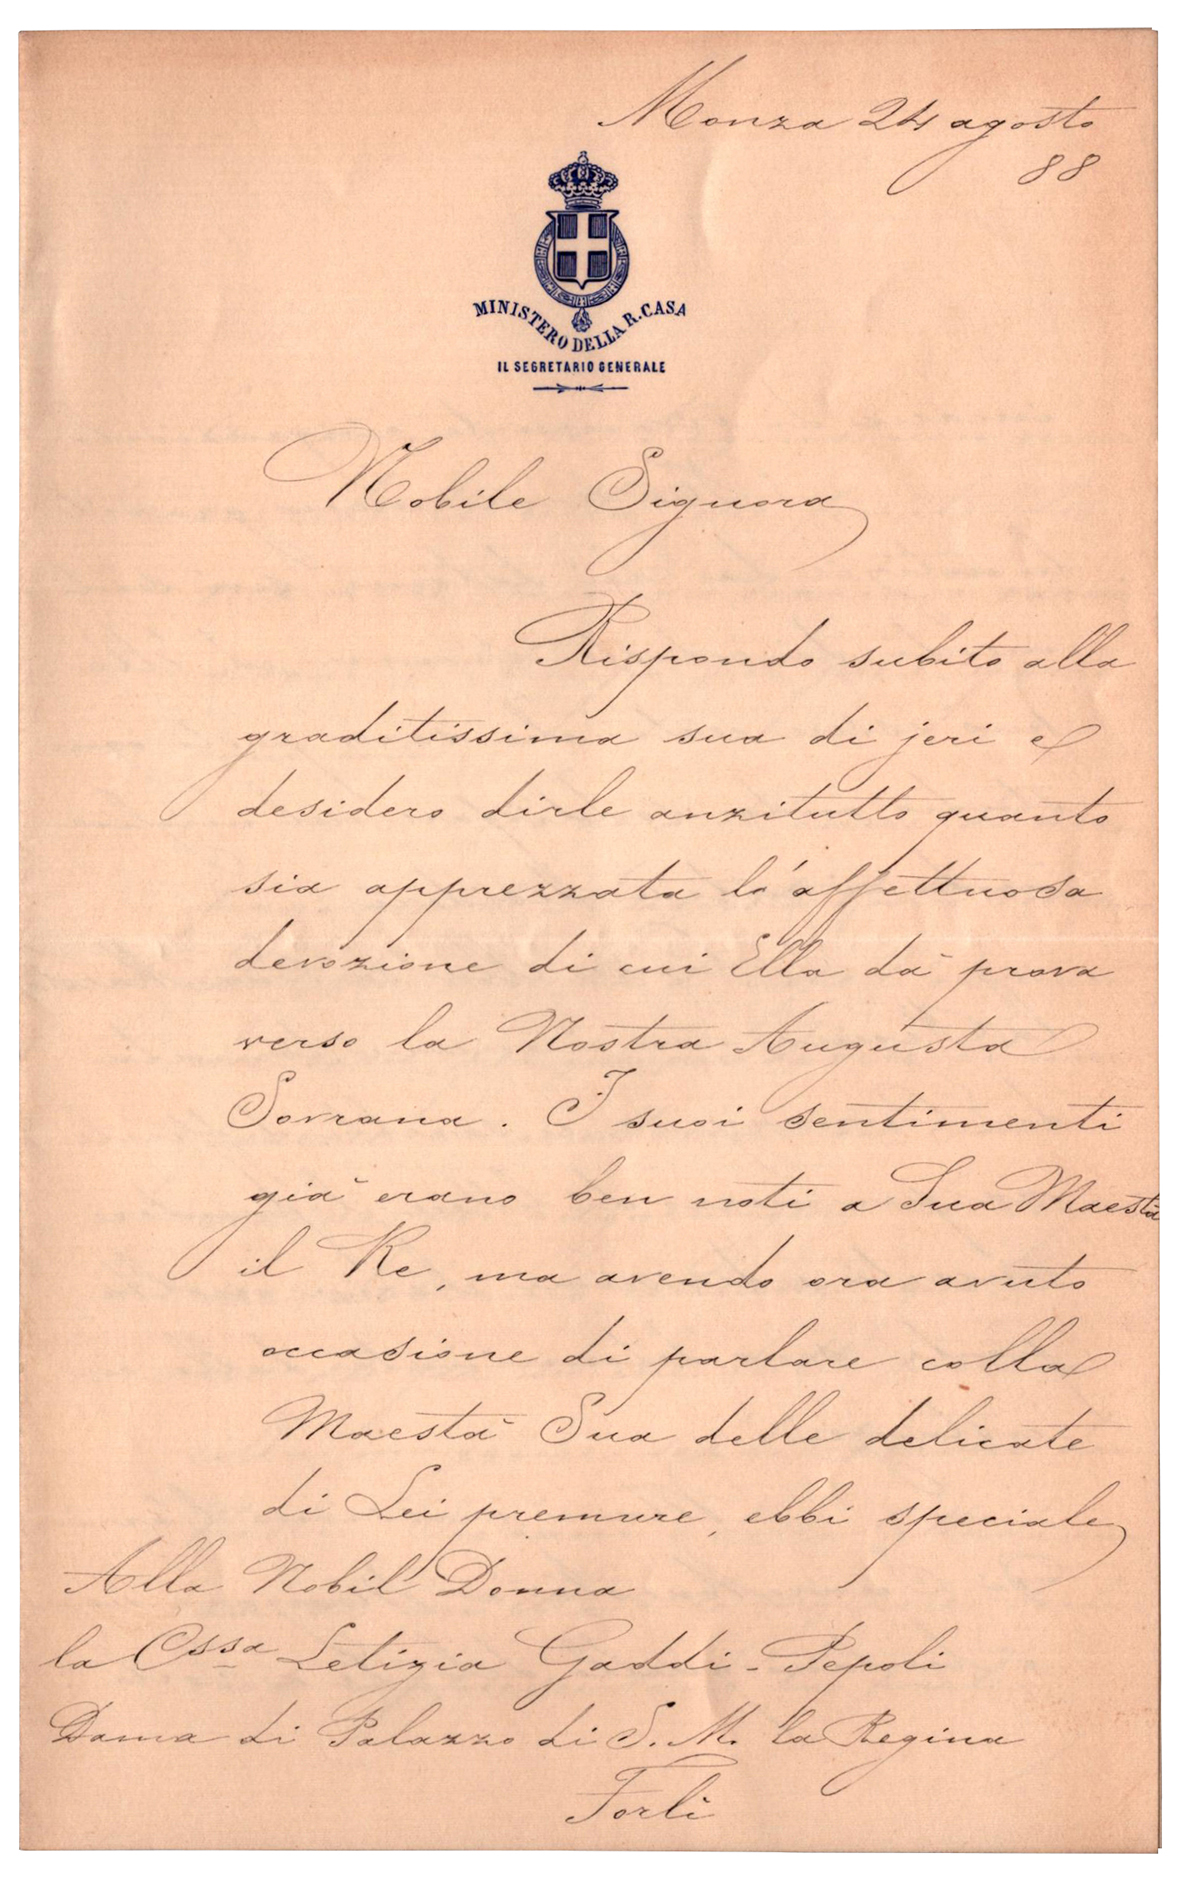 Monza 24 agosto
88
MINISTERO DELLA R. CASA
IL SEGRETARIO GENERALE
Nobile Signora
Rispondo subito alla
graditissima sua di jeri e
desidero dirle anzitutto quanto
sia apprezzata l'affettuosa
devozione di cui Ella dà prova
verso la Nostra Augusta
Sovrana. I suoi sentimenti
già erano ben noti a Sua Maestà
il Re, ma avendo ora avuto
occasione di parlare colla
Maestà Sua delle delicate
di Lei premure, ebbi speciale
Alla Nobil Donna
la Cssa Letizia Gaddi-Pepoli
Dama di Palazzo di S. M. la Regina
Forlì